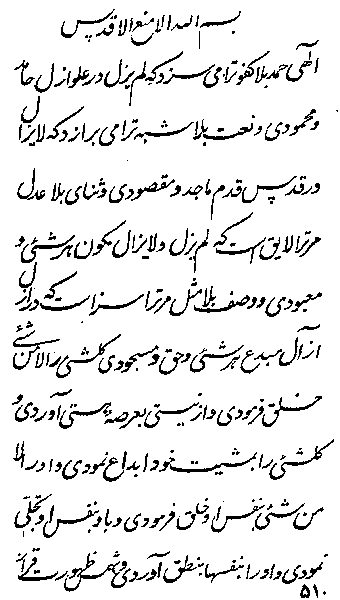 بسم الله الامنع الاقدس
الهی حمد بلا کفو ترا می سزد که لم یزل در علو ازل حامد
و محمودی و نعت بلا شبه ترا می برازد که لایزال
در قدس قدم ماجد و مقصودی و ثنای بلا عدل
مر ترا لایق است که لم یزل و لایزال مکون هر شیئی و
معبودی و وصف بلا مثل مر ترا سزاست که در ازل
آزال مبدع هر شیئی و حق و مسجودی کلشیئ را لا من شیئ
خلق فرمودی و از نیستی بعرصه هستی آوردی و
کلشیئ را بمشیت خود ابداع نمودی و او را لا
من شیئ بنفس او خلق فرمودی و باو بنفس او تجلی
نمودی و او را بنفسها بنطق آوردی و شمس ظهورت
۵۱۰